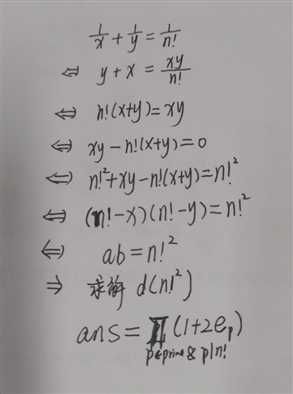 1/x + 1/y = 1/n!
⇔ y + x = xy/n!
⇔ n!(x+y) = xy
⇔ xy - n!(x+y) = 0
⇔ n!² + xy - n!(x+y) = n!²
⇔ (n! - x)(n! - y) = n!²
⇔ ab = n!²
⇒ 求解 d(n!²)
ans = ∏ (1+2e_p)
p∈prime & p|n!